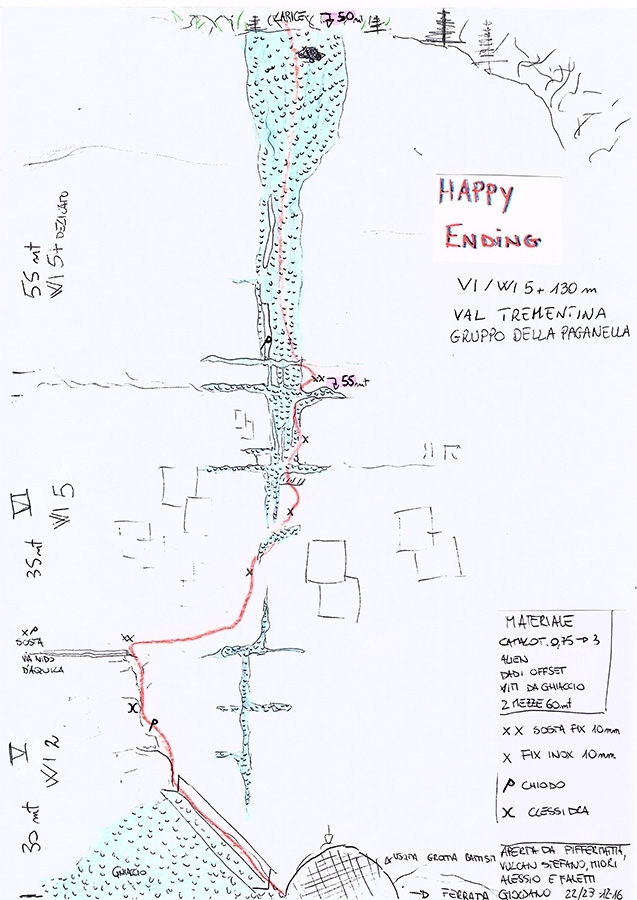 (LARICE)
50m
HAPPY
ENDING
VI / WI 5+ 130 m
VAL TREMENTINA
GRUPPO DELLA PAGANELLA
55 mt
WI 5+ DELICATO
55mt
35mt
VI
WI 5
xP
SOSTA
VIA NIDO
D'AQUILA
30 mt
V
WI 2
GHIACCIO
MATERIALE
CAMALOT. 0,75 → 3
ALIEN
DADI OFFSET
VITI DA GHIACCIO
2 MEZZE 60mt
XX SOSTA FIX 10mm
X FIX INOX 10mm
P CHIODO
CLESSIDRA
USCITA GROTTA BATTISTI
→ FERRATA
APERTA DA
VULCAN STEFANO, MIORI
ALESSIO E FALETTI
GIORDANO 22/23 12-16